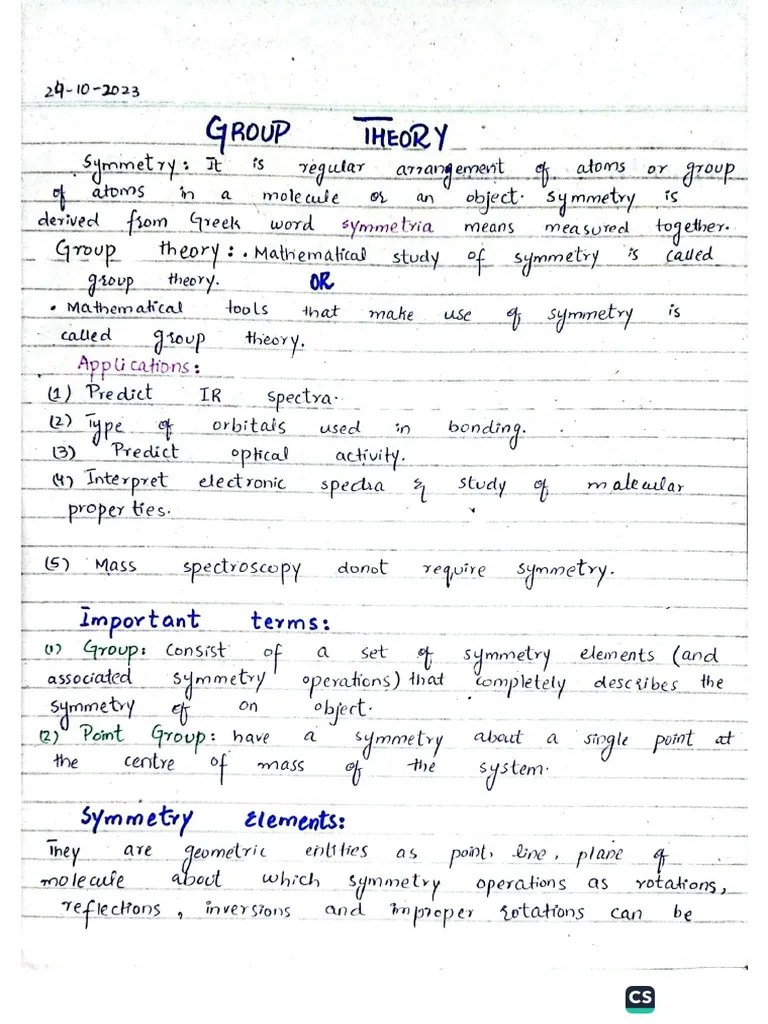 24-10-2023
GROUP THEORY
Symmetry: It is regular arrangement of atoms or group
of atoms in a molecule or an object. Symmetry is
derived from Greek word symmetria means measured together.
Group theory: • Mathematical study of symmetry is called
group theory. OR
• Mathematical tools that make use of symmetry is
called group theory.
Applications:
(1) Predict IR spectra.
(2) Type of orbitals used in bonding.
(3) Predict optical activity.
(4) Interpret electronic spectra & study of malecular
properties.
(5) Mass spectroscopy donot require symmetry.
Important terms:
(1) Group: consist of a set of symmetry elements (and
associated symmetry operations) that completely describes the
symmetry of on object.
(2) Point Group: have a symmetry about a single point at
the centre of mass of the system.
Symmetry Elements:
They are geometric entities as point, line, plane of
molecule about which symmetry operations as rotations,
reflections, inversions and improper rotations can be
CS